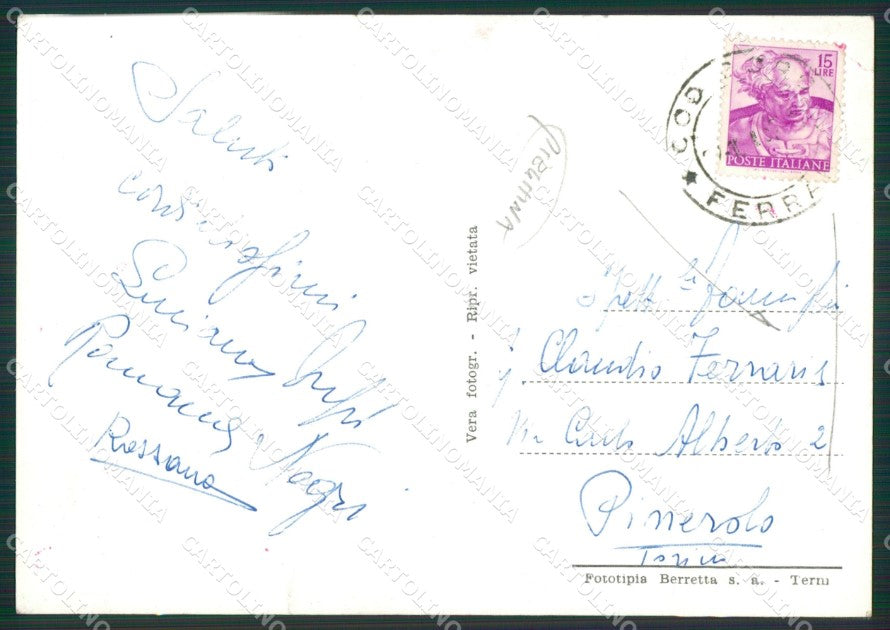 Saluti
carissimi
Luciano
Romana Negri
Rossana
Vera fotogr. - Ripr. vietata
COD
FERRA
15
LIRE
POSTE ITALIANE
Spett. le Famiglia
Claudio Ferraris
Via Carlo Alberto 2
Pinerolo
Torino
Fototipia Berretta s. a. - Terni
CARTOLINOMANIA